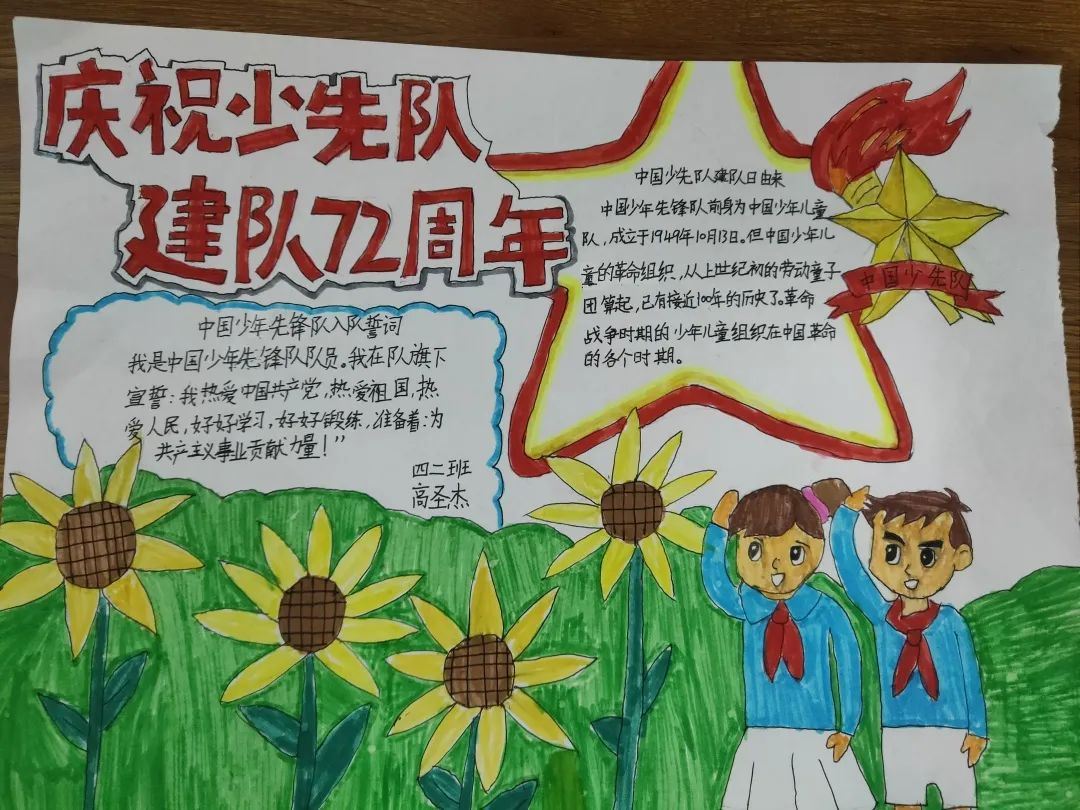 庆祝少先队
建队72周年
中国少年先锋队入队誓词
我是中国少年先锋队队员。我在队旗下
宣誓：我热爱中国共产党，热爱祖国，热
爱人民，好好学习，好好锻练，准备着：为
共产主义事业贡献力量！”
四二班
高圣杰
中国少先队建队日由来
中国少年先锋队前身为中国少年儿童
队，成立于1949年10月13日。但中国少年儿
童的革命组织，从上世纪初的劳动童子
团算起，已有接近100年的历史了。革命
战争时期的少年儿童组织在中国革命
的各个时期。
中国少先队